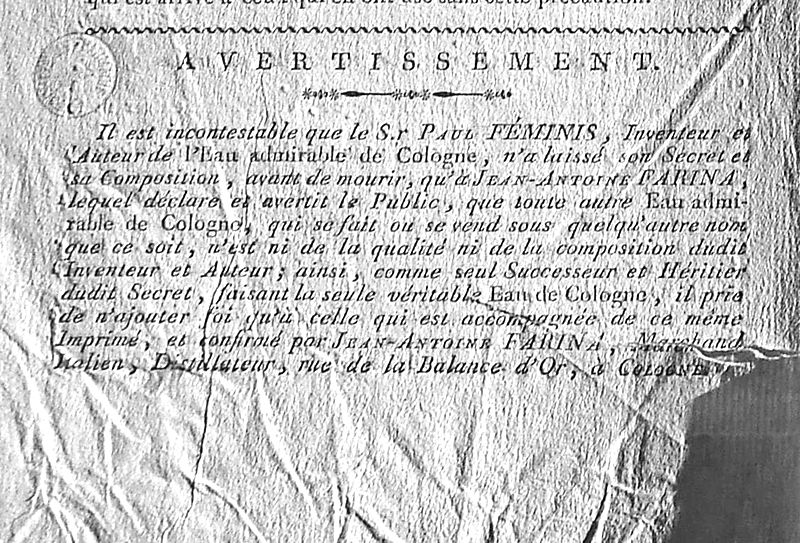 qui est arrivé à ceux qui en ont usé sans cette précaution.
AVERTISSEMENT.
Il est incontestable que le S.r PAUL FÉMINIS, Inventeur et
Auteur de l'Eau admirable de Cologne, n'a laissé son Secret et
sa Composition, avant de mourir, qu'à JEAN-ANTOINE FARINA,
lequel déclare et avertit le Public, que toute autre Eau admi-
rable de Cologne, qui se fait ou se vend sous quelqu'autre nom
que ce soit, n'est ni de la qualité ni de la composition dudit
Inventeur et Auteur; ainsi, comme seul Successeur et Héritier
dudit Secret, faisant la seule véritable Eau de Cologne, il prie
de n'ajouter foi qu'à celle qui est accompagnée de ce même
Imprimé, et confirmé par JEAN-ANTOINE FARINA, Marchand
Italien, Distillateur, rue de la Balance d'Or, à COLOGNE.